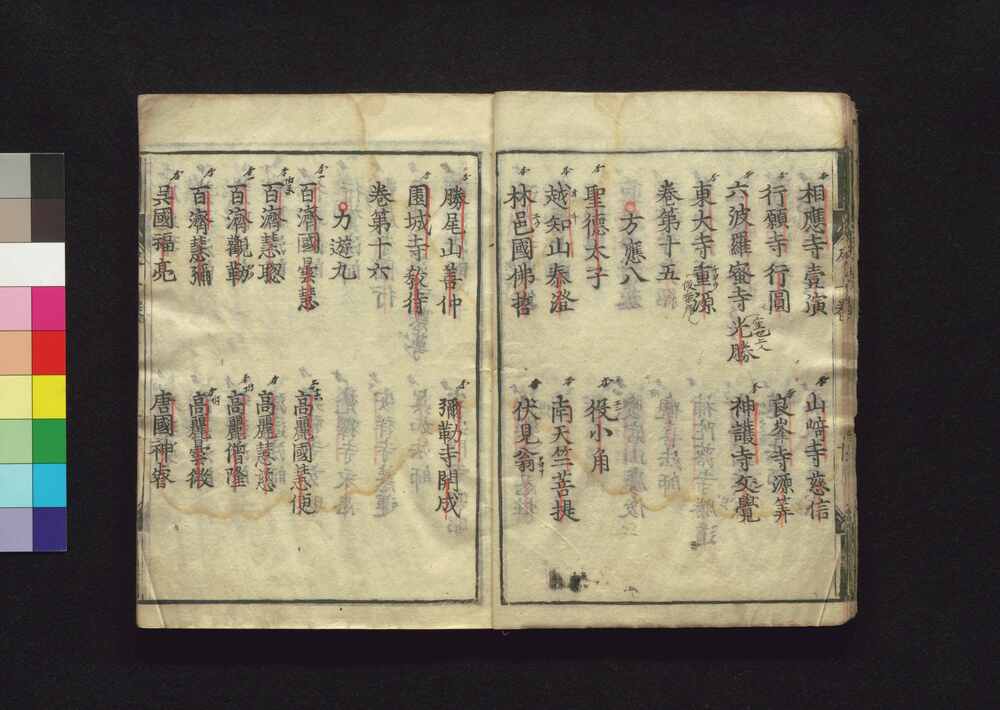 相應寺壹演
山﨑寺慈信
行願寺行圓
良峯寺源筭
六波羅蜜寺光勝
神護寺文覺
東大寺重源
卷第十五
方應八
聖德太子
役小角
越知山泰澄
南天竺菩提
林邑國佛哲
伏見翁
勝尾山善仲
彌勒寺開成
園城寺敎待
卷第十六
力遊九
百濟國曇慧
高麗國惠便
百濟慧聰
高麗慧慈
百濟觀勒
高麗僧隆
百濟慧彌
高麗雲徵
吳國福亮
唐國神睿